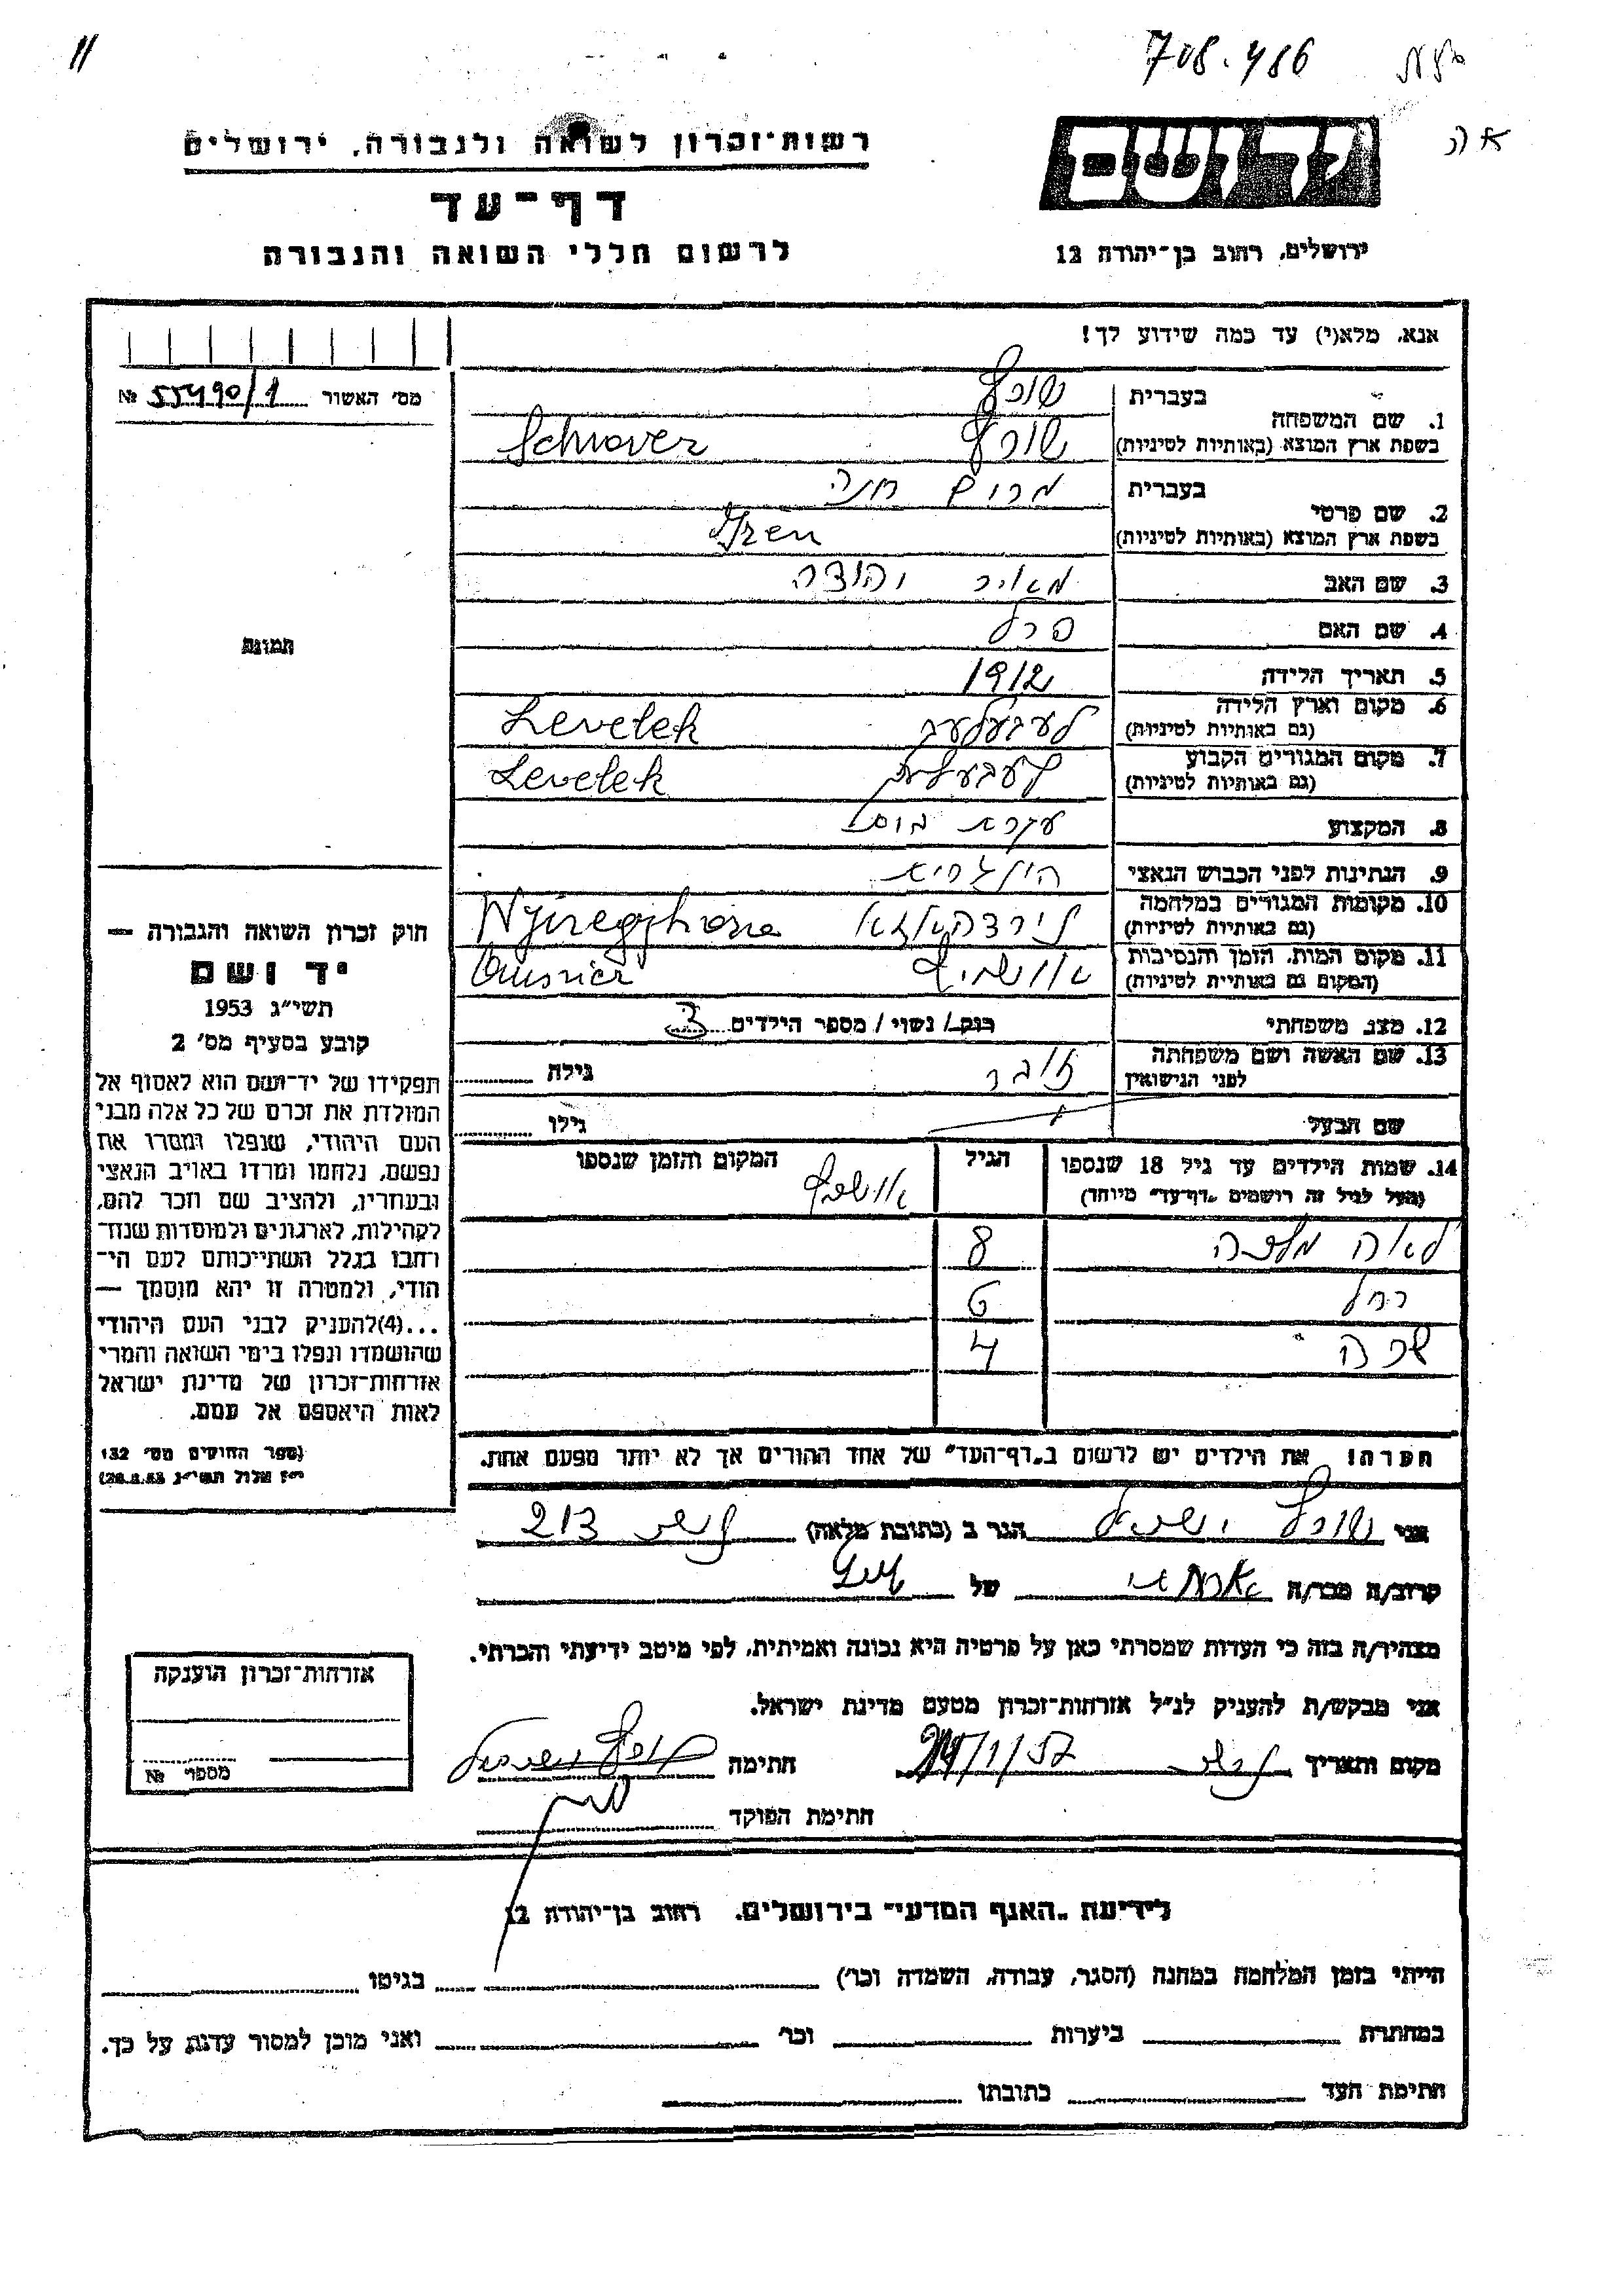 708.486
רשות־זכרון לשואה ולגבורה, ירושלים
יד ושם
דף־עד
לרשום חללי השואה והגבורה
ירושלים, רחוב בן־יהודה 12
אנא, מלא(י) עד כמה שידוע לך!
מס׳ האשור № 55490/1
בעברית
1. שם המשפחה
בשפת ארץ המוצא (באותיות לטיניות)
בעברית מרים חנה
2. שם פרטי
בשפת ארץ המוצא (באותיות לטיניות) Iren
3. שם האב מאיר יהודה
4. שם האם פרל
5. תאריך הלידה 1912
6. מקום וארץ הלידה Levelek
(גם באותיות לטיניות)
7. מקום המגורים הקבוע Levelek
(גם באותיות לטיניות)
8. המקצוע עקרת
9. הנתינות לפני הכבוש הנאצי
10. מקומות המגורים במלחמה
(גם באותיות לטיניות)
11. מקום המות, הזמן והנסיבות
(המקום גם באותיית לטיניות)
12. מצב משפחתי רוק/ נשוי/ מספר הילדים 3
13. שם האשה ושם משפחתה גילה
לפני הנישואין
שם הבעל גילו
14. שמות הילדים עד גיל 18 שנספו הגיל המקום והזמן שנספו
(מעל לגיל זה רושמים „דף־עד״ מיוחד)
לאה מלכה 8
רחל 6
4
הערה! את הילדים יש לרשום ב„דף־העד״ של אחד ההורים אך לא יותר מפעם אחת.
תמונה
חוק זכרון השואה והגבורה —
יד ושם
תשי״ג 1953
קובע בסעיף מס׳ 2
תפקידו של יד־ושם הוא לאסוף אל
המולדת את זכרם של כל אלה מבני
העם היהודי, שנפלו ומסרו את
נפשם, נלחמו ומרדו באויב הנאצי
ובעוזריו, ולהציב שם וזכר להם,
לקהילות, לארגונים ולמוסדות שנח־
רחבו בגלל השתייכותם לעם הי־
הודי, ולמטרה זו יהא מוסמך —
...(4)להעניק לבני העם היהודי
שהושמדו ונפלו בימי השואה והמרי
אזרחות־זכרון של מדינת ישראל
לאות היאספם אל עמם.
(ספר החוקים מס׳ 132
י״ז אלול תשי״ג 28.8.53)
אני הגר ב (כתובת מלאה) 213
קרוב/ה מכר/ה של
מצהיר/ה בזה כי העדות שמסרתי כאן על פרטיה היא נכונה ואמיתית, לפי מיטב ידיעתי והכרתי.
אני מבקש/ת להעניק לנ״ל אזרחות־זכרון מטעם מדינת ישראל.
מקום ותאריך 24/1/57 חתימה
חתימת הפוקד
אזרחות־זכרון הוענקה
מספר №
לידיעת „האגף המדעי״ בירושלים, רחוב בן־יהודה 12
הייתי בזמן המלחמה במחנה (הסגר, עבודה, השמדה וכו׳) בגיטו
במחתרת ביערות וכו׳ ואני מוכן למסור עדות על כך.
חתימת העד כתובתו